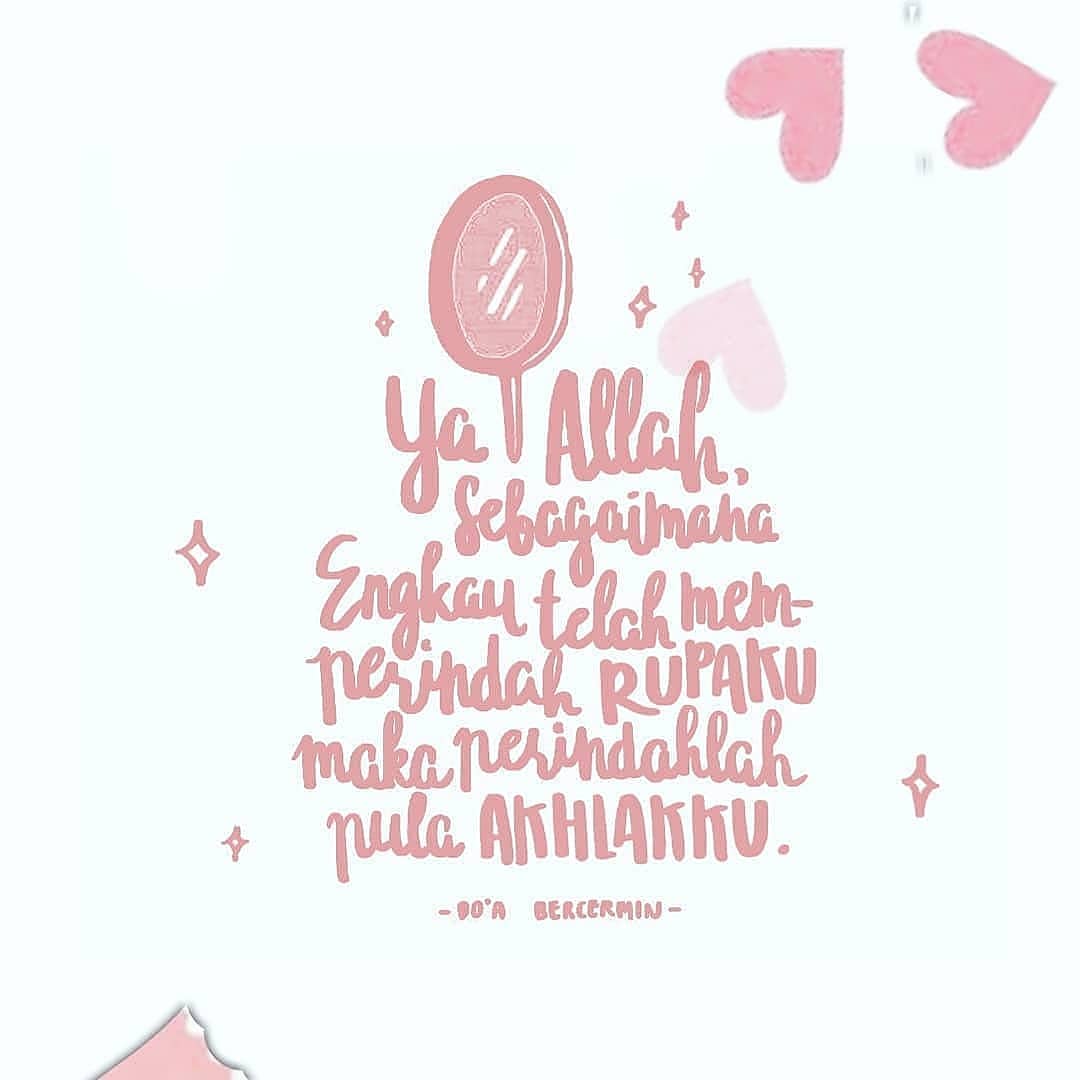 Ya Allah,
sebagaimana
Engkau telah mem-
perindah RUPAKU
maka perindahlah
pula AKHLAKKU.
-DO'A BERCERMIN-